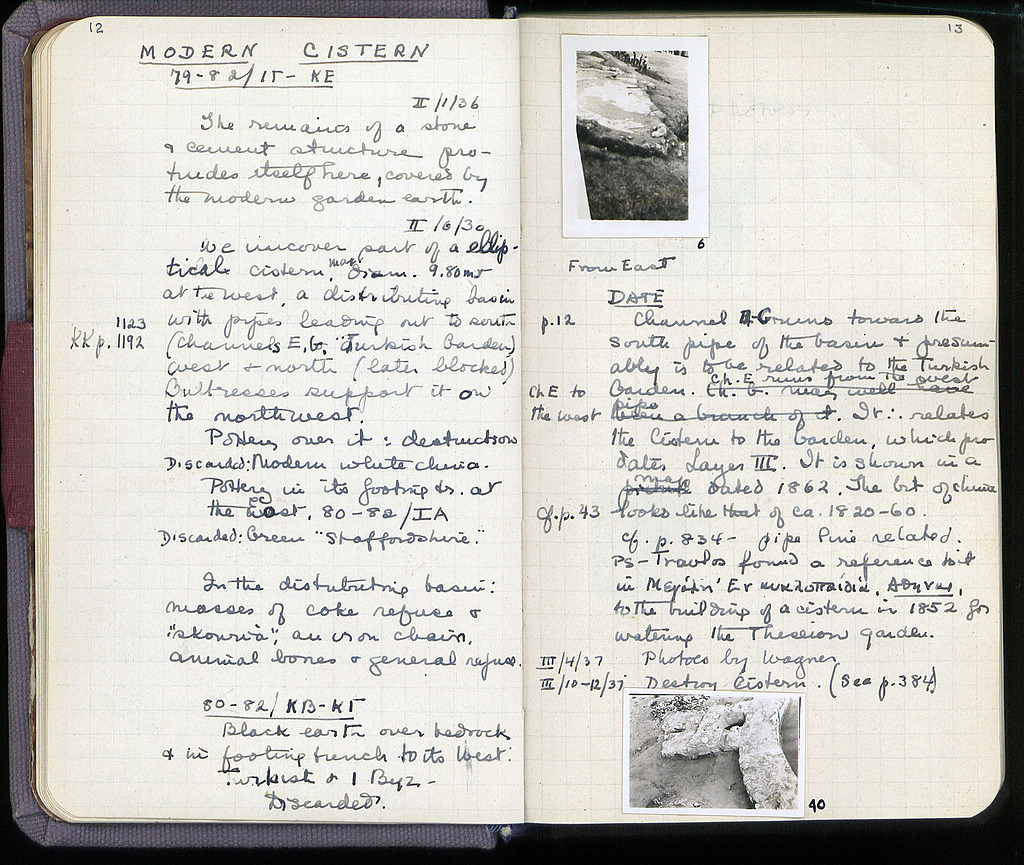 12
MODERN CISTERN
79-82/ΙΓ-ΚΕ
II/1/36
The remains of a stone
& cement structure pro-
trudes itself here, covered by
the modern garden earth.
II/6/36
We uncover part of a ellip-
tical cistern, max diam. 9.80 mt
at the west, a distributing basin
1123 with pipes leading out to south
KK p. 1192 (Channels E, G, "Turkish Garden)
west & north (later blocked)
Buttresses support it on
the northwest.
Pottery over it: destruction
Discarded: Modern white china.
Pottery in its footing tr. at
the East. 80-82/ΙΑ
Discarded: Green "Staffordshire."
In the distributing basin:
masses of coke refuse &
"skouria", an iron chain,
animal bones & general refuse.
80-82/ΚΒ-ΚΓ
Black earth over bedrock
& in footing trench to its West:
Turkish & 1 Byz-
Discarded.
13
6
From East
DATE
p.12 Channel G runs toward the
south pipe of the basin & presum-
ably is to be related to the Turkish
Garden. Ch. E runs from the west
pipe
Ch. G. may well have
Ch E to
the west been a branch of it. It ∴ relates
the Cistern to the Garden, which pre-
dates Layer III. It is shown in a
map
picture dated 1862. The bit of china
cf. p. 43 looks like that of ca. 1820-60.
cf. p. 834- pipe line related.
PS- Travlos found a reference to it
in Μεγάλη Εγκυκλοπαίδια, Αθηναι,
to the building of a cistern in 1852 for
watering the Theseion garden.
III/4/37 Photoes by Wagner
III/10-12/37 Destroy Cistern. (See p.384)
40